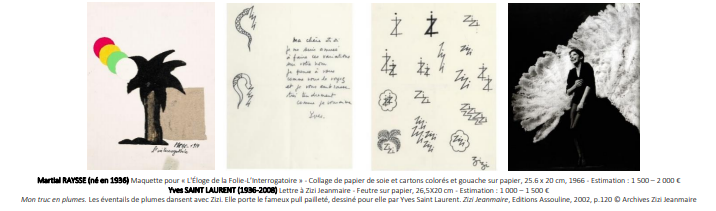 Ma chère Zizi
je me suis amusé
à faire ces variations
sur votre nom
je pense à vous
comme vous le voyez
Yves.
Martial RAYSSE (né en 1936) Maquette pour « L'Éloge de la Folie-L'Interrogatoire » - Collage de papier de soie et cartons colorés et gouache sur papier, 25.6 x 20 cm, 1966 - Estimation : 1 500 – 2 000 €
Yves SAINT LAURENT (1936-2008) Lettre à Zizi Jeanmaire - Feutre sur papier, 26,5X20 cm - Estimation : 1 000 – 1 500 €
Mon truc en plumes. Les éventails de plumes dansent avec Zizi. Elle porte le fameux pull pailleté, dessiné pour elle par Yves Saint Laurent. Zizi Jeanmaire, Editions Assouline, 2002, p.120 © Archives Zizi Jeanmaire